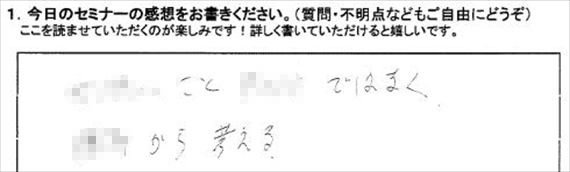 1. 今日のセミナーの感想をお書きください。(質問・不明点などもご自由にどうぞ)
ここを読ませていただくのが楽しみです!詳しく書いていただけると嬉しいです。
こと ではまく
から 考える